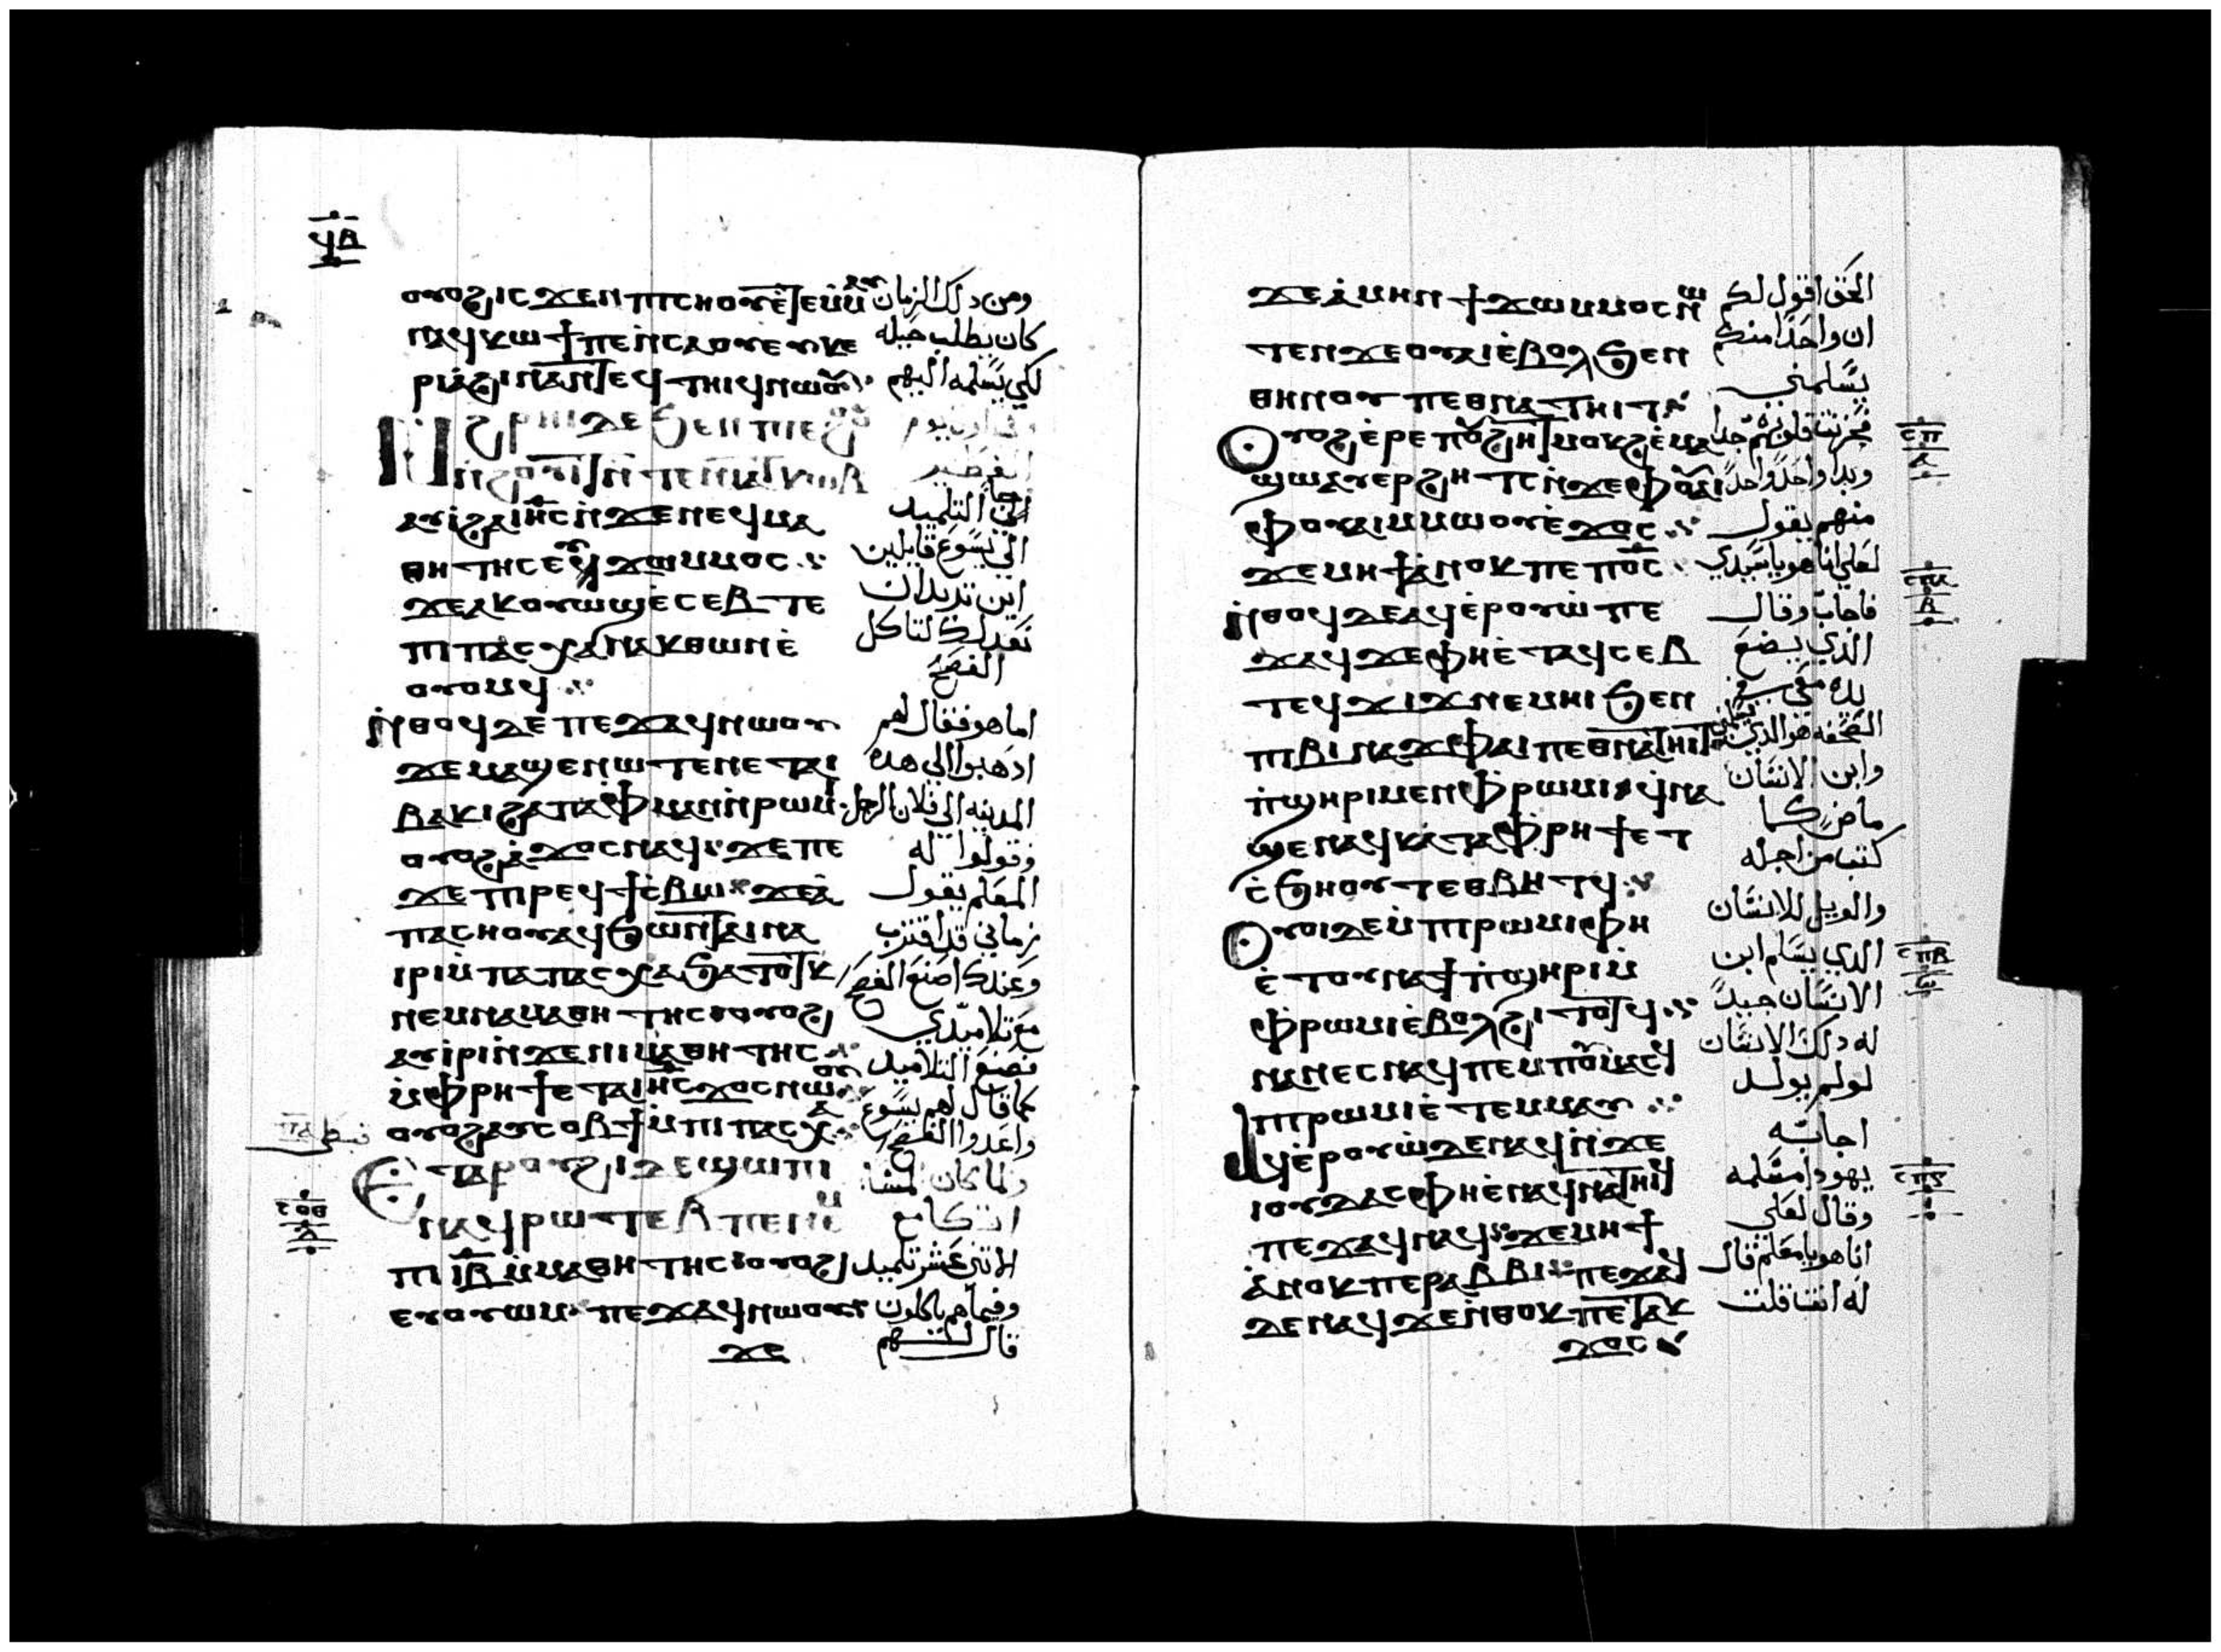 ϥⲃ
ⲟⲩⲟϩ ⲓⲥϫⲉⲛ ⲡⲓⲥⲏⲟⲩ ⲉⲧⲉⲙⲙⲁⲩ ومن ذلك الزمان
ⲛⲁϥⲕⲱϯ ⲡⲉ ⲛⲥⲁ ⲟⲩⲉⲩⲕⲉ كان يطلب حيله
ⲣⲓⲁ ϩⲓⲛⲁ ⲛⲧⲉϥⲧⲏⲓϥ ⲛⲱⲟⲩ لكي يسلمه اليهم
ⲛϩⲣⲏⲓ ⲇⲉ ϧⲉⲛ ⲡⲓⲉϩⲟⲟⲩ وفي اول يوم
ⲛϩⲟⲩⲓⲧ ⲛⲧⲉ ⲛⲓⲁⲧⲕⲱⲃ الفطير
ⲁⲩⲓ ϩⲁ ⲓⲏⲥ ⲛϫⲉ ⲛⲉϥⲙⲁ جا التلميد
ⲑⲏⲧⲏⲥ ⲉⲩϫⲱ ⲙⲙⲟⲥ الي يسوع قايلين
ϫⲉ ⲁⲕⲟⲩⲱϣ ⲉⲥⲉⲃⲧⲉ اين تريد ان
ⲡⲓⲡⲁⲥⲭⲁ ⲛⲁⲕ ⲑⲱⲛ ⲉ نعد لك لتاكل
ⲟⲩⲟⲙϥ الفصح
ⲛⲑⲟϥ ⲇⲉ ⲡⲉϫⲁϥ ⲛⲱⲟⲩ اما هو فقال لهم
ϫⲉ ⲙⲁϣⲉⲛⲱⲧⲉⲛ ⲉⲧⲁⲓ ادهبوا الي هده
ⲃⲁⲕⲓ ϩⲁ ⲡⲁⲫⲙⲁⲛ ⲛⲣⲱⲙⲓ المدينه الي فلان الرجل
ⲟⲩⲟϩ ⲁϫⲟⲥ ⲛⲁϥ ϫⲉ ⲡⲉ وقولوا له
ϫⲉ ⲡⲓⲣⲉϥϯⲥⲃⲱ ϫⲉ ⲁ المعلم يقول
ⲡⲁⲥⲏⲟⲩ ⲁϥϧⲱⲛⲧ ⲁⲓⲛⲁ زماني قد اقترب
ⲓⲣⲓ ⲙⲡⲁⲡⲁⲥⲭⲁ ϧⲁⲧⲟⲧⲕ وعندك اصنع الفصح
ⲛⲉⲙ ⲛⲁⲙⲁⲑⲏⲧⲏⲥ ⲟⲩⲟϩ مع تلاميدي
ⲁⲩⲓⲣⲓ ⲛϫⲉ ⲛⲓⲙⲁⲑⲏⲧⲏⲥ فصنع التلاميد
ⲙⲫⲣⲏϯ ⲉⲧⲁ ⲓⲏⲥ ϫⲟⲥ ⲛⲱⲟⲩ كما قال لهم يسوع
ⲟⲩⲟϩ ⲁⲩⲥⲟⲃϯ ⲙⲡⲓⲡⲁⲥⲭⲁ واعدوا الفصح
ⲉⲧⲁ ⲣⲟⲩϩⲓ ⲇⲉ ϣⲱⲡⲓ ولما كان المسا
ⲛⲁϥⲣⲱⲧⲉⲃ ⲡⲉ ⲛⲉⲙ اتكا مع
ⲡⲓⲓⲃ ⲙⲙⲁⲑⲏⲧⲏⲥ ⲟⲩⲟϩ الاتني عشر تلميد
ⲉⲩⲟⲩⲱⲙ ⲡⲉϫⲁϥ ⲛⲱⲟⲩ وفيما هم ياكلون
ϫⲉ قال لهم
ⲥⲟⲑ
ⲇ
ϫⲉ ⲁⲙⲏⲛ ϯϫⲱ ⲙⲙⲟⲥ ⲛⲱ الحق اقول لكم
ⲧⲉⲛ ϫⲉ ⲟⲩⲁⲓ ⲉⲃⲟⲗ ϧⲉⲛ ان واحدا منكم
ⲑⲏⲛⲟⲩ ⲡⲉⲑⲛⲁⲧⲏⲓⲧ يسلمني
ⲟⲩⲟϩ ⲉⲣⲉ ⲡⲟⲩϩⲏⲧ ⲙⲟⲕϩ ⲉⲙⲁ فحزنت قلوبهم جدا
ϣⲱ ⲁⲩⲉⲣϩⲏⲧⲥ ⲛϫⲉ ⲫⲟⲩⲁⲓ وبدا واحدا واحدا
ⲫⲟⲩⲁⲓ ⲙⲙⲱⲟⲩ ⲉϫⲟⲥ منهم يقول
ϫⲉ ⲙⲏϯ ⲁⲛⲟⲕ ⲡⲉ ⲡⲟⲥ لعلي انا هو يا سيدي
ⲛⲑⲟϥ ⲇⲉ ⲁϥⲉⲣⲟⲩⲱ ⲡⲉ فاجاب وقال
ϫⲁϥ ϫⲉ ⲫⲏ ⲉⲧⲁϥⲥⲉⲃ الذي يضع
ⲧⲉϥϫⲓϫ ⲛⲉⲙⲏⲓ ϧⲉⲛ يده معي في
ⲡⲓⲃⲓⲛⲁϫ ⲫⲁⲓ ⲡⲉⲑⲛⲁⲧⲏⲓⲧ الصحفه هو الدي يسلمني
ⲡϣⲏⲣⲓ ⲙⲉⲛ ⲙⲫⲣⲱⲙⲓ ϥⲛⲁ وابن الانسان
ϣⲉⲛⲁϥ ⲕⲁⲧⲁ ⲫⲣⲏϯ ⲉⲧ ماض كما
ⲥϧⲏⲟⲩⲧ ⲉⲑⲃⲏⲧϥ كتب من اجله
ⲟⲩⲟⲓ ⲇⲉ ⲙⲡⲓⲣⲱⲙⲓ ⲫⲏ والويل للانسان
ⲉⲧⲟⲩⲛⲁϯ ⲙⲡϣⲏⲣⲓ ⲙ الدي يسلم ابن
ⲫⲣⲱⲙⲓ ⲉⲃⲟⲗ ϩⲓⲧⲟⲧϥ الانسان جيدً
ⲛⲁⲛⲉⲥ ⲛⲁϥ ⲡⲉ ⲙⲡⲟⲩⲙⲁⲥϥ له دلك الانسان
ⲡⲓⲣⲱⲙⲓ ⲉⲧⲉⲙⲙⲁⲩ لو لم يولد
ⲁϥⲉⲣⲟⲩⲱ ⲇⲉ ⲛⲁϥ ⲛϫⲉ اجابه
ⲓⲟⲩⲇⲁⲥ ⲫⲏ ⲉⲛⲁϥⲛⲁⲧⲏⲓϥ يهودا مسلمه
ⲡⲉϫⲁϥ ⲛⲁϥ ϫⲉ ⲙⲏϯ وقال لعلي
ⲁⲛⲟⲕ ⲡⲉ ⲣⲁⲃⲃⲓ ⲡⲉϫⲁϥ انا هو يا معلم قال
ⲇⲉ ⲛⲁϥ ϫⲉ ⲛⲑⲟⲕ ⲡⲉⲧⲁⲕ له انت قلت
ϫⲟⲥ
ⲥⲡ
ⲇ
ⲥⲡⲁ
ⲃ
ⲥⲡⲃ
ⲥⲡⲅ
ⲓ